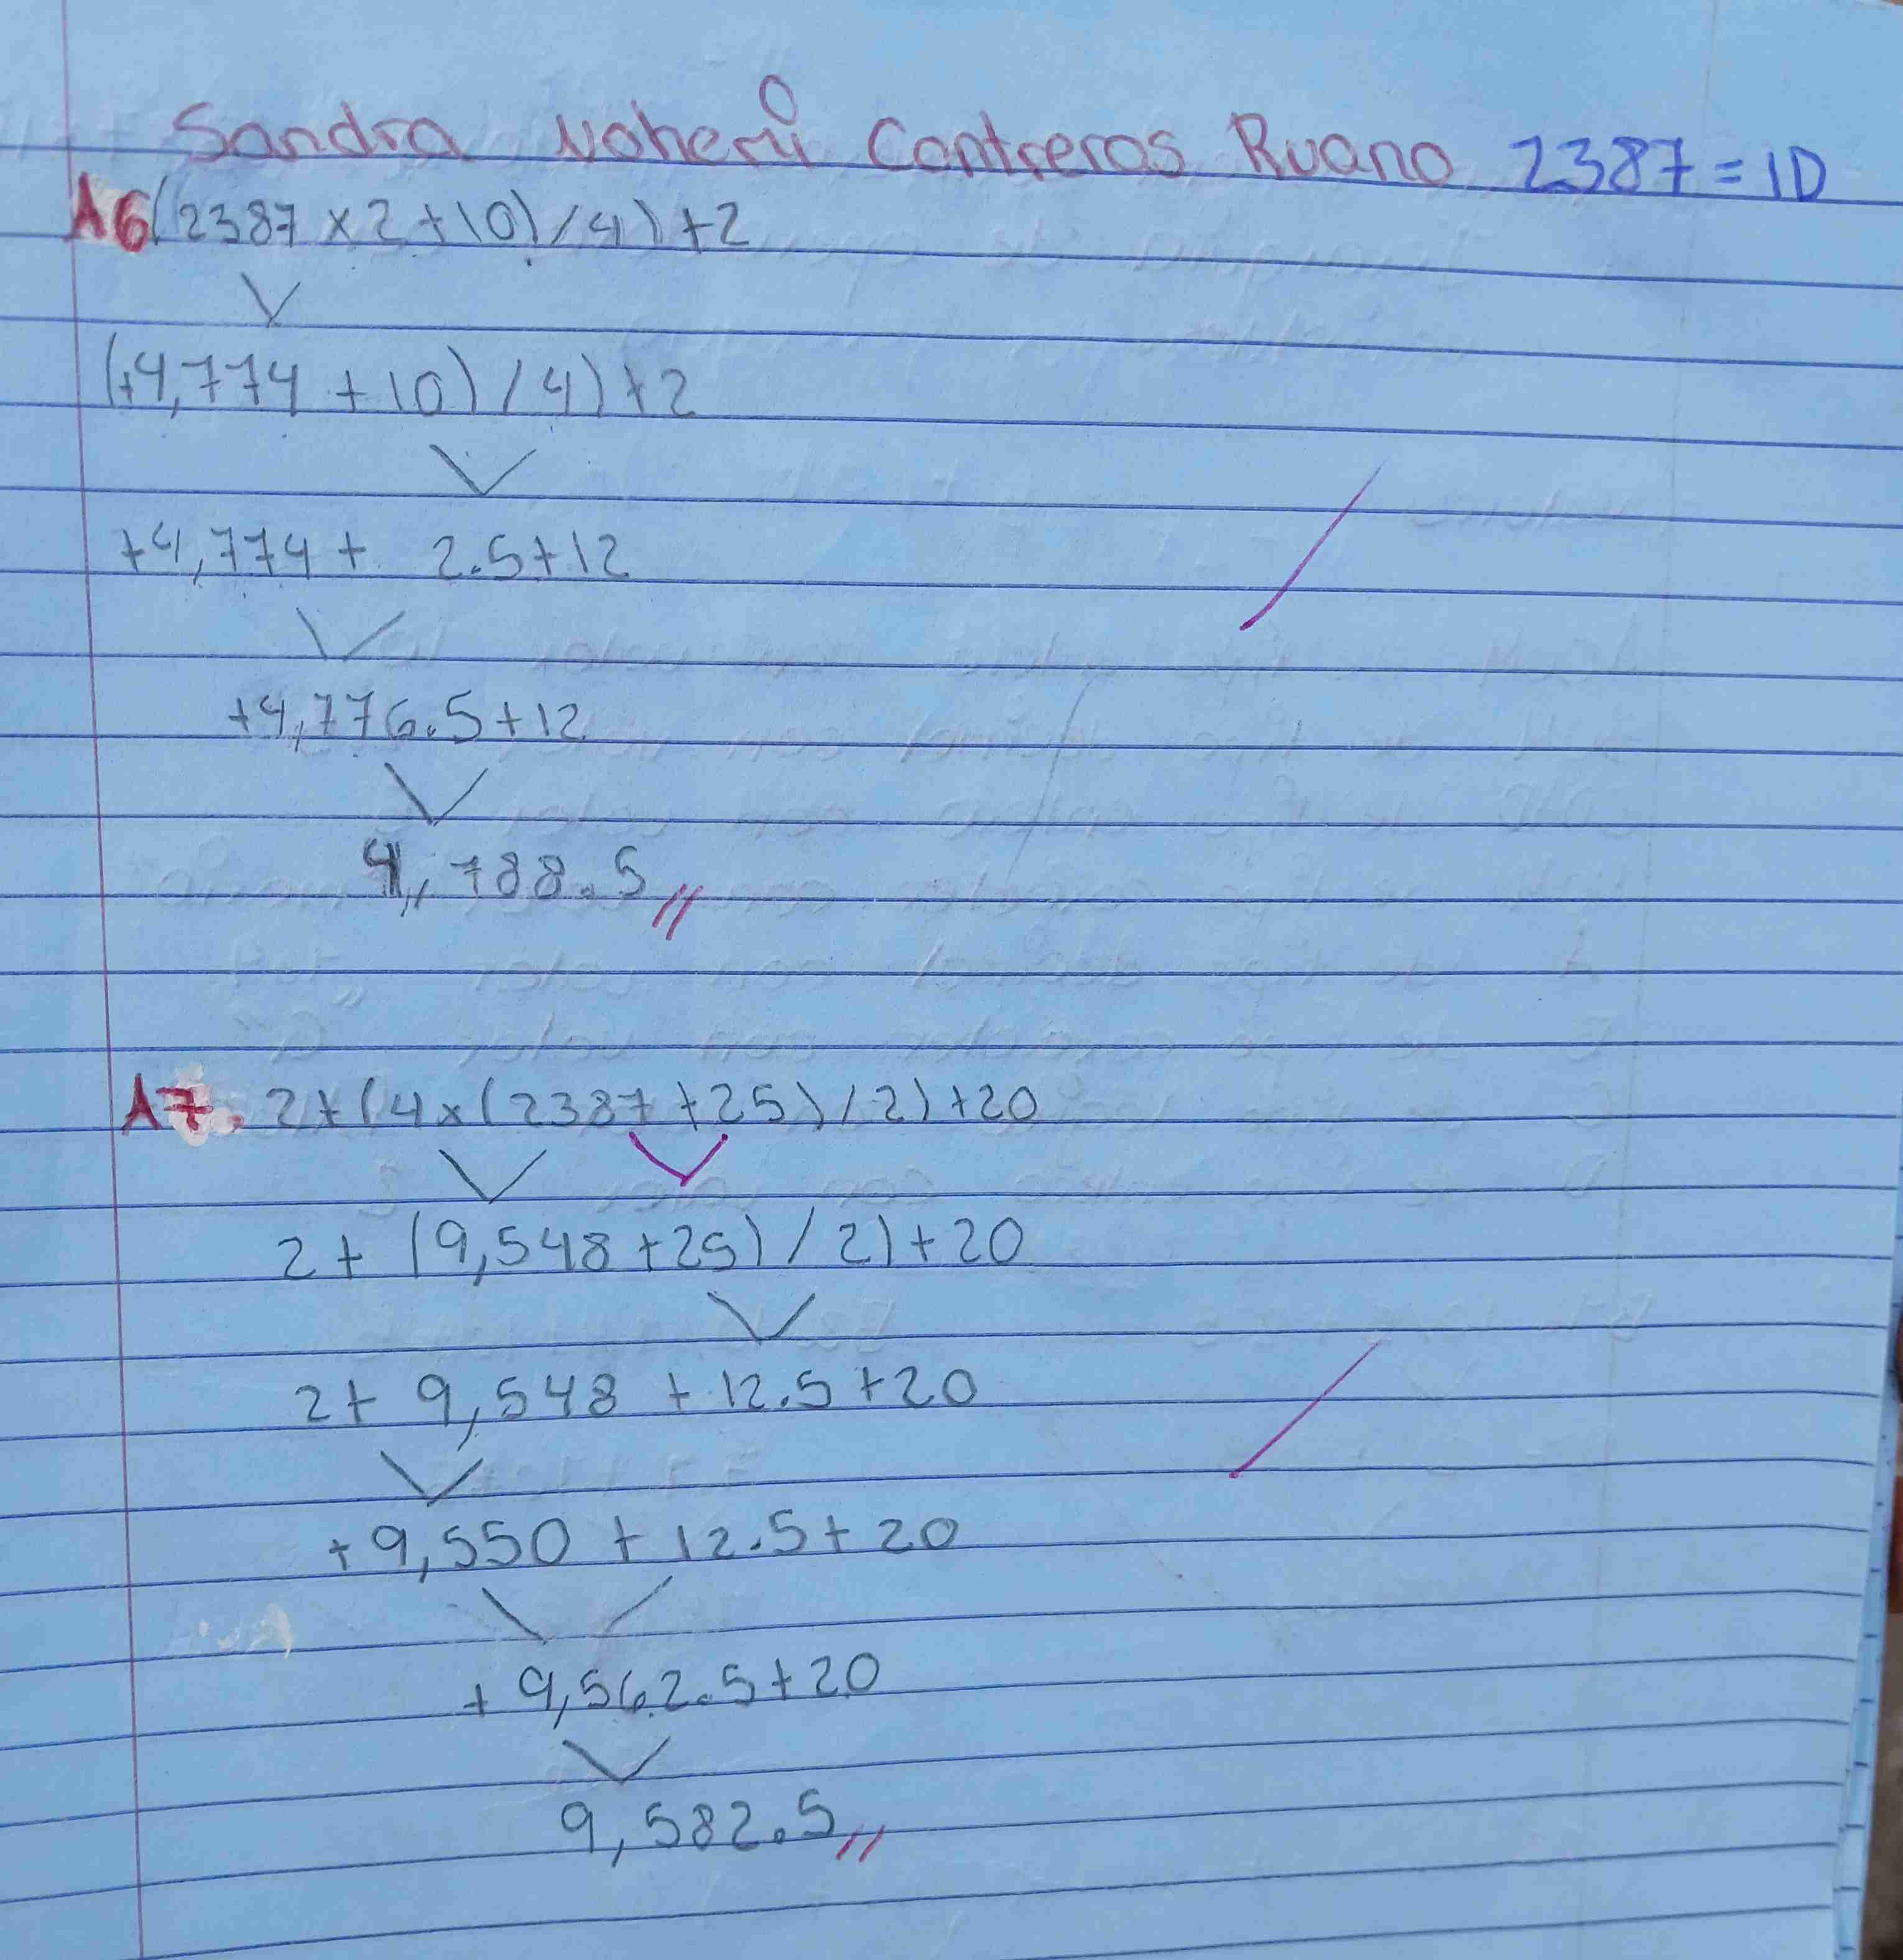 Sandra Nohemi Contreras Ruano 2387 = ID
A6 (2387 x 2 + 10) / 4) + 2
(+4,774 + 10) / 4) + 2
+4,774 + 2.5 + 12
+4,776.5 + 12
4,788.5 //
A7. 2 + (4 x (2387 + 25) / 2) + 20
2 + (9,548 + 25) / 2) + 20
2 + 9,548 + 12.5 + 20
+ 9,550 + 12.5 + 20
+ 9,562.5 + 20
9,582.5 //